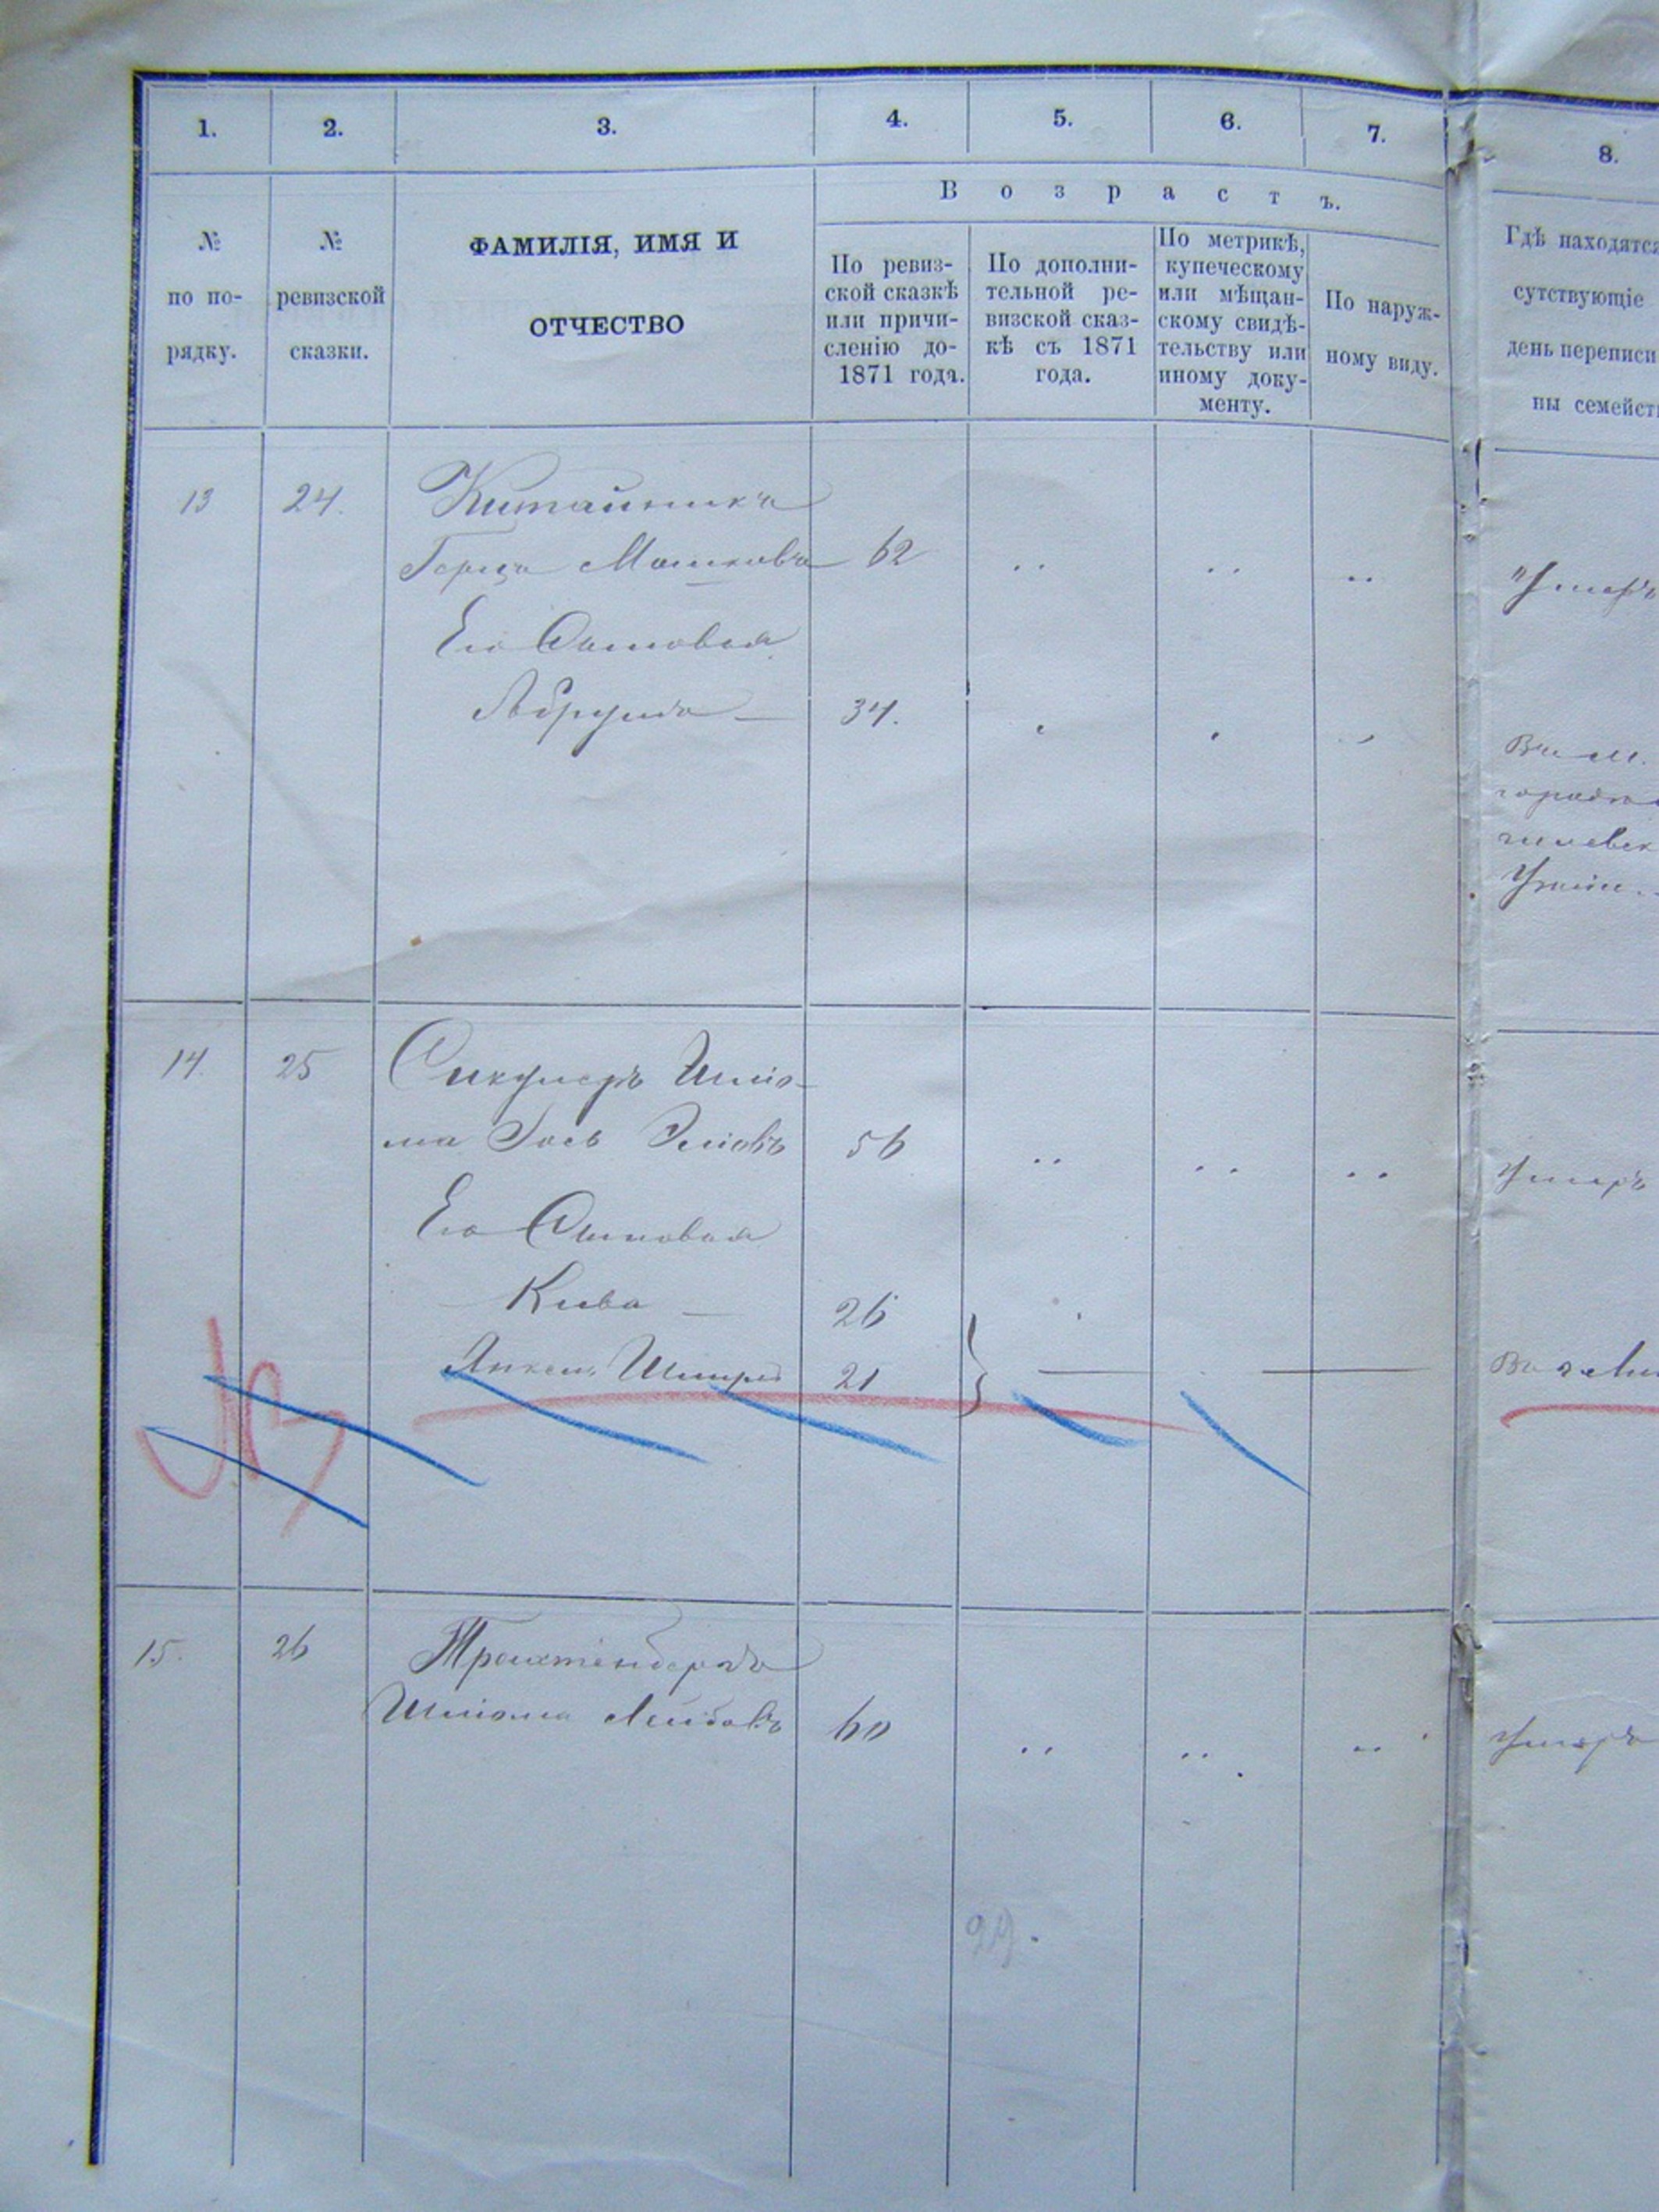 1. 2. 3. 4. 5. 6. 7. 8.
В о з р а с т ъ.
№ по по-
рядку.
№
ревизской
сказки.
ФАМИЛІЯ, ИМЯ И
ОТЧЕСТВО
По ревиз-
ской сказкѣ
или причи-
сленію до-
1871 года.
По дополни-
тельной ре-
визской сказ-
кѣ съ 1871
года.
По метрикѣ,
купеческому
или мѣщан-
скому свидѣ-
тельству или
иному доку-
менту.
По наруж-
ному виду.
Гдѣ находятся
сутствующіе
день переписи
ны семейст
13 24. Китайникъ
Герцъ Мошковъ 62 Умеръ
Его Сыновья
Абрумъ — 34.
14. 25 Шміо-
ма Эось 56 Умеръ
Его Сыновья
Кива — 26
Янкель Шмиръ 21
15. 26 Трахтенбергъ
Шміома Лейбовъ 60 Умеръ
29.